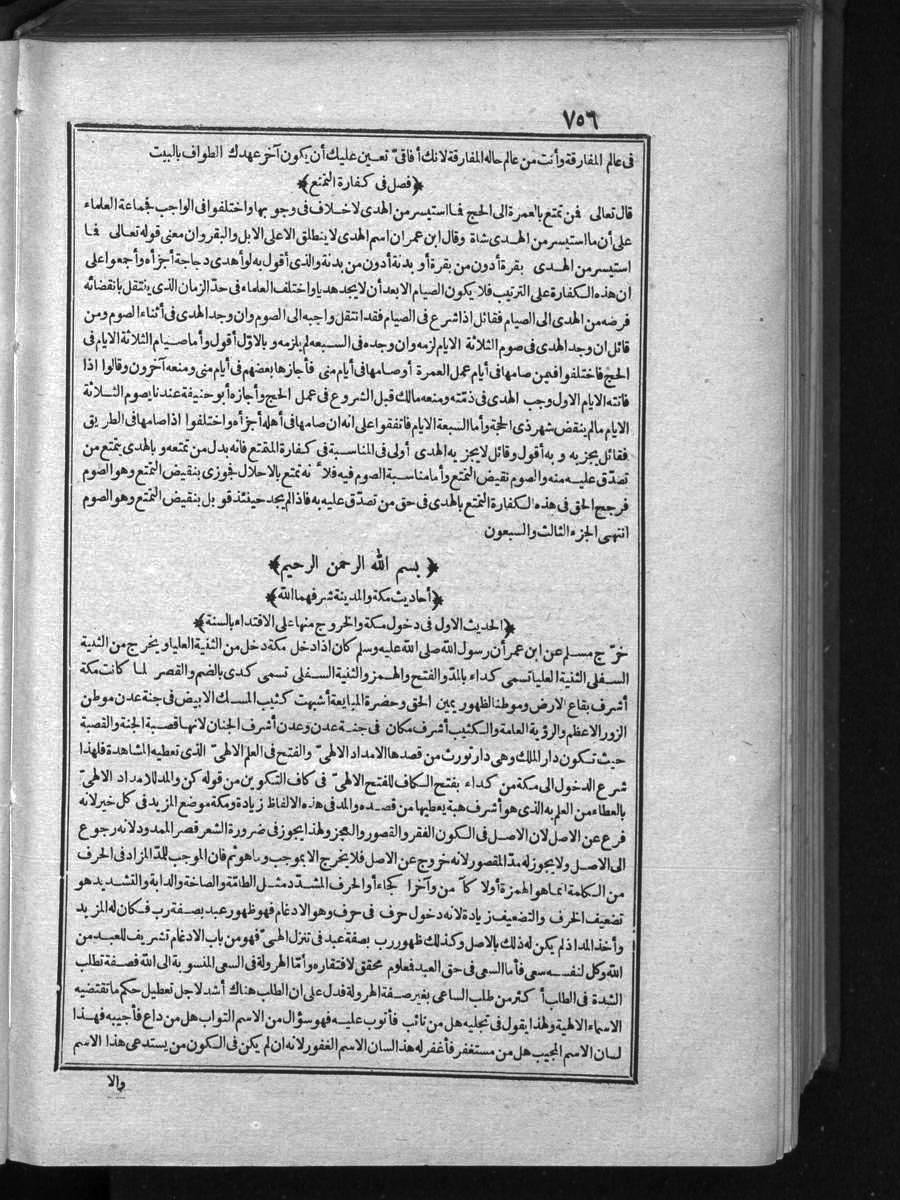 ٧٥٦
فى عالم المفارقة وأنت من عالم حاله المفارقة لانك أفاقىّ تعين عليك أن يكون آخر عهدك الطواف بالبيت
﴿فصل فى كفارة التمتع﴾
قال تعالى فمن تمتع بالعمرة الى الحج فما استيسر من الهدى لا خلاف فى وجوبها واختلفوا فى الواجب فجماعة العلماء
على أن ما استيسر من الهدى شاة وقال ابن عمر ان اسم الهدى لا ينطلق الا على الابل والبقر وان معنى قوله تعالى فما
استيسر من الهدى بقرة أدون من بقرة أو بدنة أدون من بدنة والذى أقول به لو أهدى دجاجة أجزأه وأجمعوا على
ان هذه الكفارة على الترتيب فلا يكون الصيام الا بعد أن لا يجد هديا واختلف العلماء فى حدّ الزمان الذى ينتقل بانقضائه
فرضه من الهدى الى الصيام فقائل اذا شرع فى الصيام فقد انتقل واجبه الى الصوم وان وجد الهدى فى أثناء الصوم ومن
قائل ان وجد الهدى فى صوم الثلاثة الايام لزمه وان وجده فى السبعة لم يلزمه وبالاوّل أقول وأما صيام الثلاثة الايام فى
الحج فاختلفوا فيمن صامها فى أيام عمل العمرة أو صامها فى أيام منى فأجازها بعضهم فى أيام منى ومنعه آخرون وقالوا اذا
فاتته الايام الاول وجب الهدى فى ذمّته ومنعه مالك قبل الشروع فى عمل الحج وأجازه أبو حنيفة عندنا يصوم الثلاثة
الايام مالم ينقض شهر ذى الحجة وأما السبعة الايام فاتفقوا على انه ان صامها فى أهله أجزأه واختلفوا اذا صامها فى الطريق
فقائل يجزيه وبه أقول وقائل لا يجزيه الهدى أولى فى المناسبة فى كفارة المتمتع فانه بدل من تمتعه وبالهدى يتمتع من
تصدّق عليه منه والصوم نقيض التمتع وأما مناسبة الصوم فيه فلأنه تمتع بالاحلال فجوزى بنقيض التمتع وهو الصوم
فرجح الحق فى هذه الكفارة التمتع بالهدى فى حق من تصدّق عليه به فاذا لم يجد حينئذ قوبل بنقيض التمتع وهو الصوم
انتهى الجزء الثالث والسبعون
﴿بسم الله الرحمن الرحيم﴾
﴿أحاديث مكة والمدينة شرفهما الله﴾
﴿الحديث الاول فى دخول مكة والخروج منها على الاقتداء بالسنة﴾
خرّج مسلم عن ابن عمر أن رسول الله صلى الله عليه وسلم كان اذا دخل مكة دخل من الثنية العليا ويخرج من الثنية
السفلى الثنية العليا تسمى كداء بالمدّ والفتح والهمز والثنية السفلى تسمى كدى بالضم والقصر لما كانت مكة
أشرف بقاع الارض وموطنا لظهور يمين الحق وحضرة المبايعة أشبهت كثيب المسك الابيض فى جنة عدن موطن
الزور الاعظم والرؤية العامة والكثيب أشرف مكان فى جنة عدن وعدن أشرف الجنان لانها قصبة الجنة والقصبة
حيث تكون دار الملك وهى دار تورث من قصدها الامداد الالهىّ والفتح فى العلم الالهىّ الذى تعطيه المشاهدة فلهذا
شرع الدخول الى مكة من كداء بفتح الكاف للفتح الالهىّ فى كاف التكوين من قوله كن والمد للامداد الالهىّ
بالعطاء من العلم به الذى هو أشرف هبة يعطيها من قصده والمد فى هذه الالفاظ زيادة ومكة موضع المزيد فى كل خير لانه
فرع عن الاصل لان الاصل فى الكون الفقر والقصور والعجز ولهذا يجوز فى ضرورة الشعر قصر الممدود لانه رجوع
الى الاصل ولا يجوز له مدّ المقصور لانه خروج عن الاصل فلا يخرج الا بموجب وما هو ثم فان الموجب للمدّ المزاد فى الحرف
من الكلمة انما هو الهمزة أولا كآمن وآخرا كجاء أو الحرف المشدّد مثل الطامّة والصاخة والدابة والتشديد هو
تضعيف الحرف والتضعيف زيادة لانه دخول حرف فى حرف وهو الادغام فهو ظهور عبد بصفة رب فكان له المزيد
وأخذ المد اذ لم يكن له ذلك بالاصل وكذلك ظهور رب بصفة عبد فى تنزل الهىّ فهو من باب الادغام تشريف للعبد من
الله وكل لنفسه سعى فأما السعى فى حق العبد فعلوم محقق لافتقاره وأمّا الهرولة فى السعى المنسوبة الى الله فصفة تطلب
الشدة فى الطلب أكثر من طلب الساعى بغير صفة الهرولة فدل على ان الطلب هناك أشد لاجل تعطيل حكم ما تقتضيه
الاسماء الالهية ولهذا يقول فى تجليه هل من تائب فأتوب عليه فهو سؤال من الاسم التواب هل من داع فأجيبه فهذا
لسان الاسم المجيب هل من مستغفر فأغفر له هذا لسان الاسم الغفور لانه ان لم يكن فى الكون من يستدعى هذا الاسم
والا